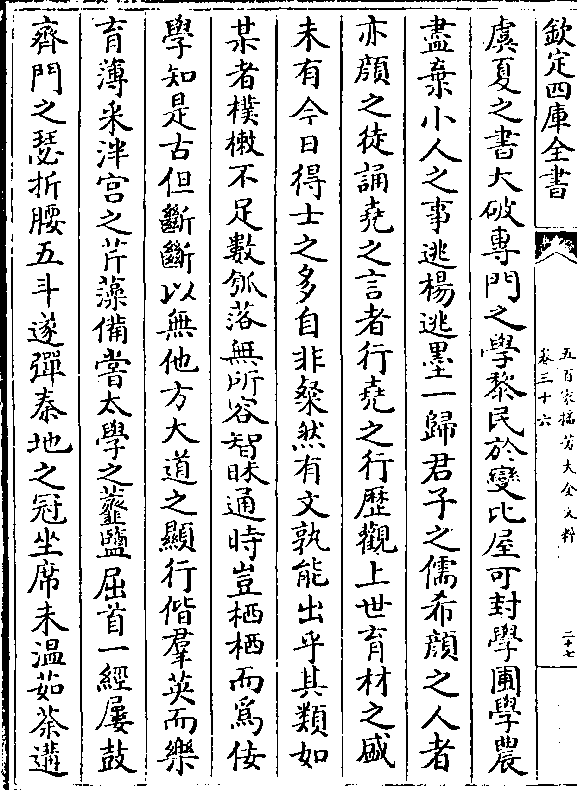 欽定四庫全書
五百家播芳大全文粹
卷三十六
二十七
虞夏之書大破專門之學黎民於變比屋可封學圃學農
盡棄小人之事逃楊逃墨一歸君子之儒希顔之人者
亦顔之徒誦堯之言者行堯之行歴觀上世育材之盛
未有今日得士之多自非粲然有文孰能出乎其類如
某者樸樕不足數瓠落無所容智昧通時豈栖栖而爲佞
學知是古但斷斷以無他方大道之顯行偕羣英而樂
育薄采泮宫之芹藻備嘗太學之虀鹽屈首一經屢鼓
齊門之瑟折腰五斗遂彈秦地之冠坐席未温茹荼遘